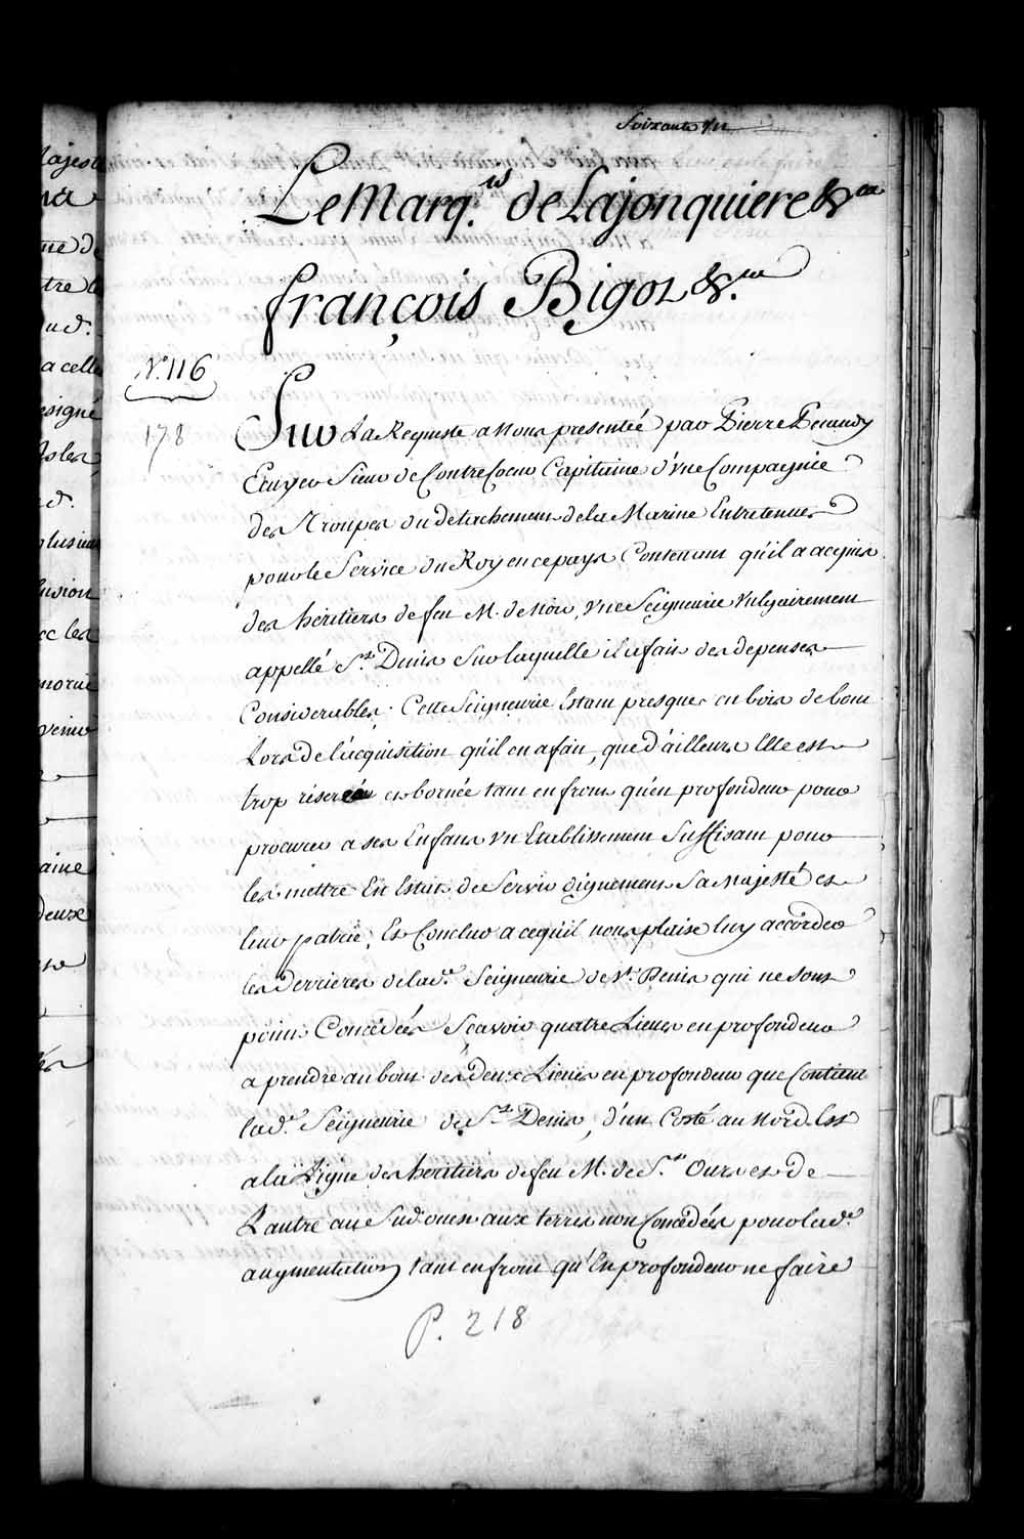 Soixante
Le Marq.is de Lajonquiere &ca
françois Bigot &.ca
N.o 116
178
Sur La Requeste a Nous presentée par Pierre Pecaudy
Ecuyer Sieur de Contrecoeur Capitaine d'Vne Compagnie
des Troupes du detachement de la Marine Entretenues
pour le Service du Roy en ce pays Contenant qu'il a acquis
des heritiers de feu M. de Noir, Vne Seigneurie Vulgairement
appellé S.t Denis Sur laquelle il a fait des depenses
Considerables. Cette Seigneurie Estant presque en bois de bout
Lors de l'acquisition qu'il en a fait, que d'ailleurs Elle est
trop et bornée tant en front qu'en profondeur pour
procurer a ses Enfans vn Etablissement Suffisant pour
les mettre En Estat de Servir dignement Sa Majesté et
leur patrie, Et Conclut a ce qu'il nous plaise luy accorder
les derrieres de lad.e Seigneurie de S.t Denis qui ne sont
point Concedées Scavoir quatre Lieues en profondeur
a prendre au bout des deux Lieues en profondeur que Contient
lad.e Seigneurie de S.t Denis, d'un Costé au Nord Est
a la Ligne des heritiers de feu M. de S.t Ours et de
L'autre au Sud ouest aux terres non Concedées pour lad.e
augmentation tant en front qu'En profondeur ne faire
P. 218
ajest
me de
tre
ud.
a celle
esigné
d.
lusieu
ec les
aine
deux